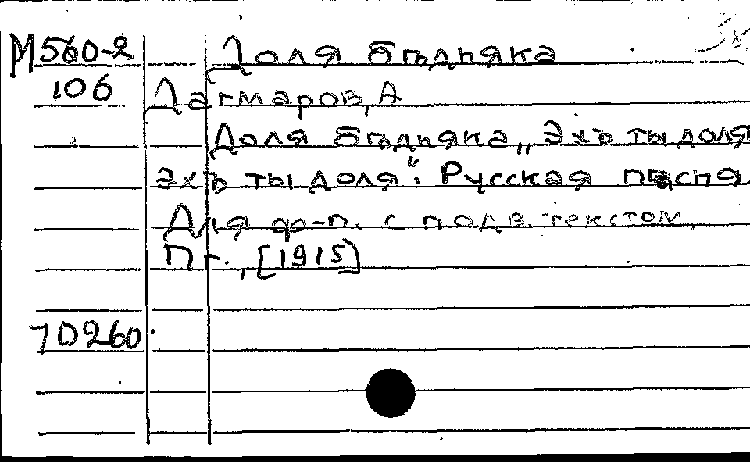 М 560-2 Доля бѣдняка
106 Дагмаров, А
Доля бѣдняка „Эхъ ты доля
эхъ ты доля". Русская пѣсня.
Для ф-п. с подв. текстом.
Пг., [1915]
70260.